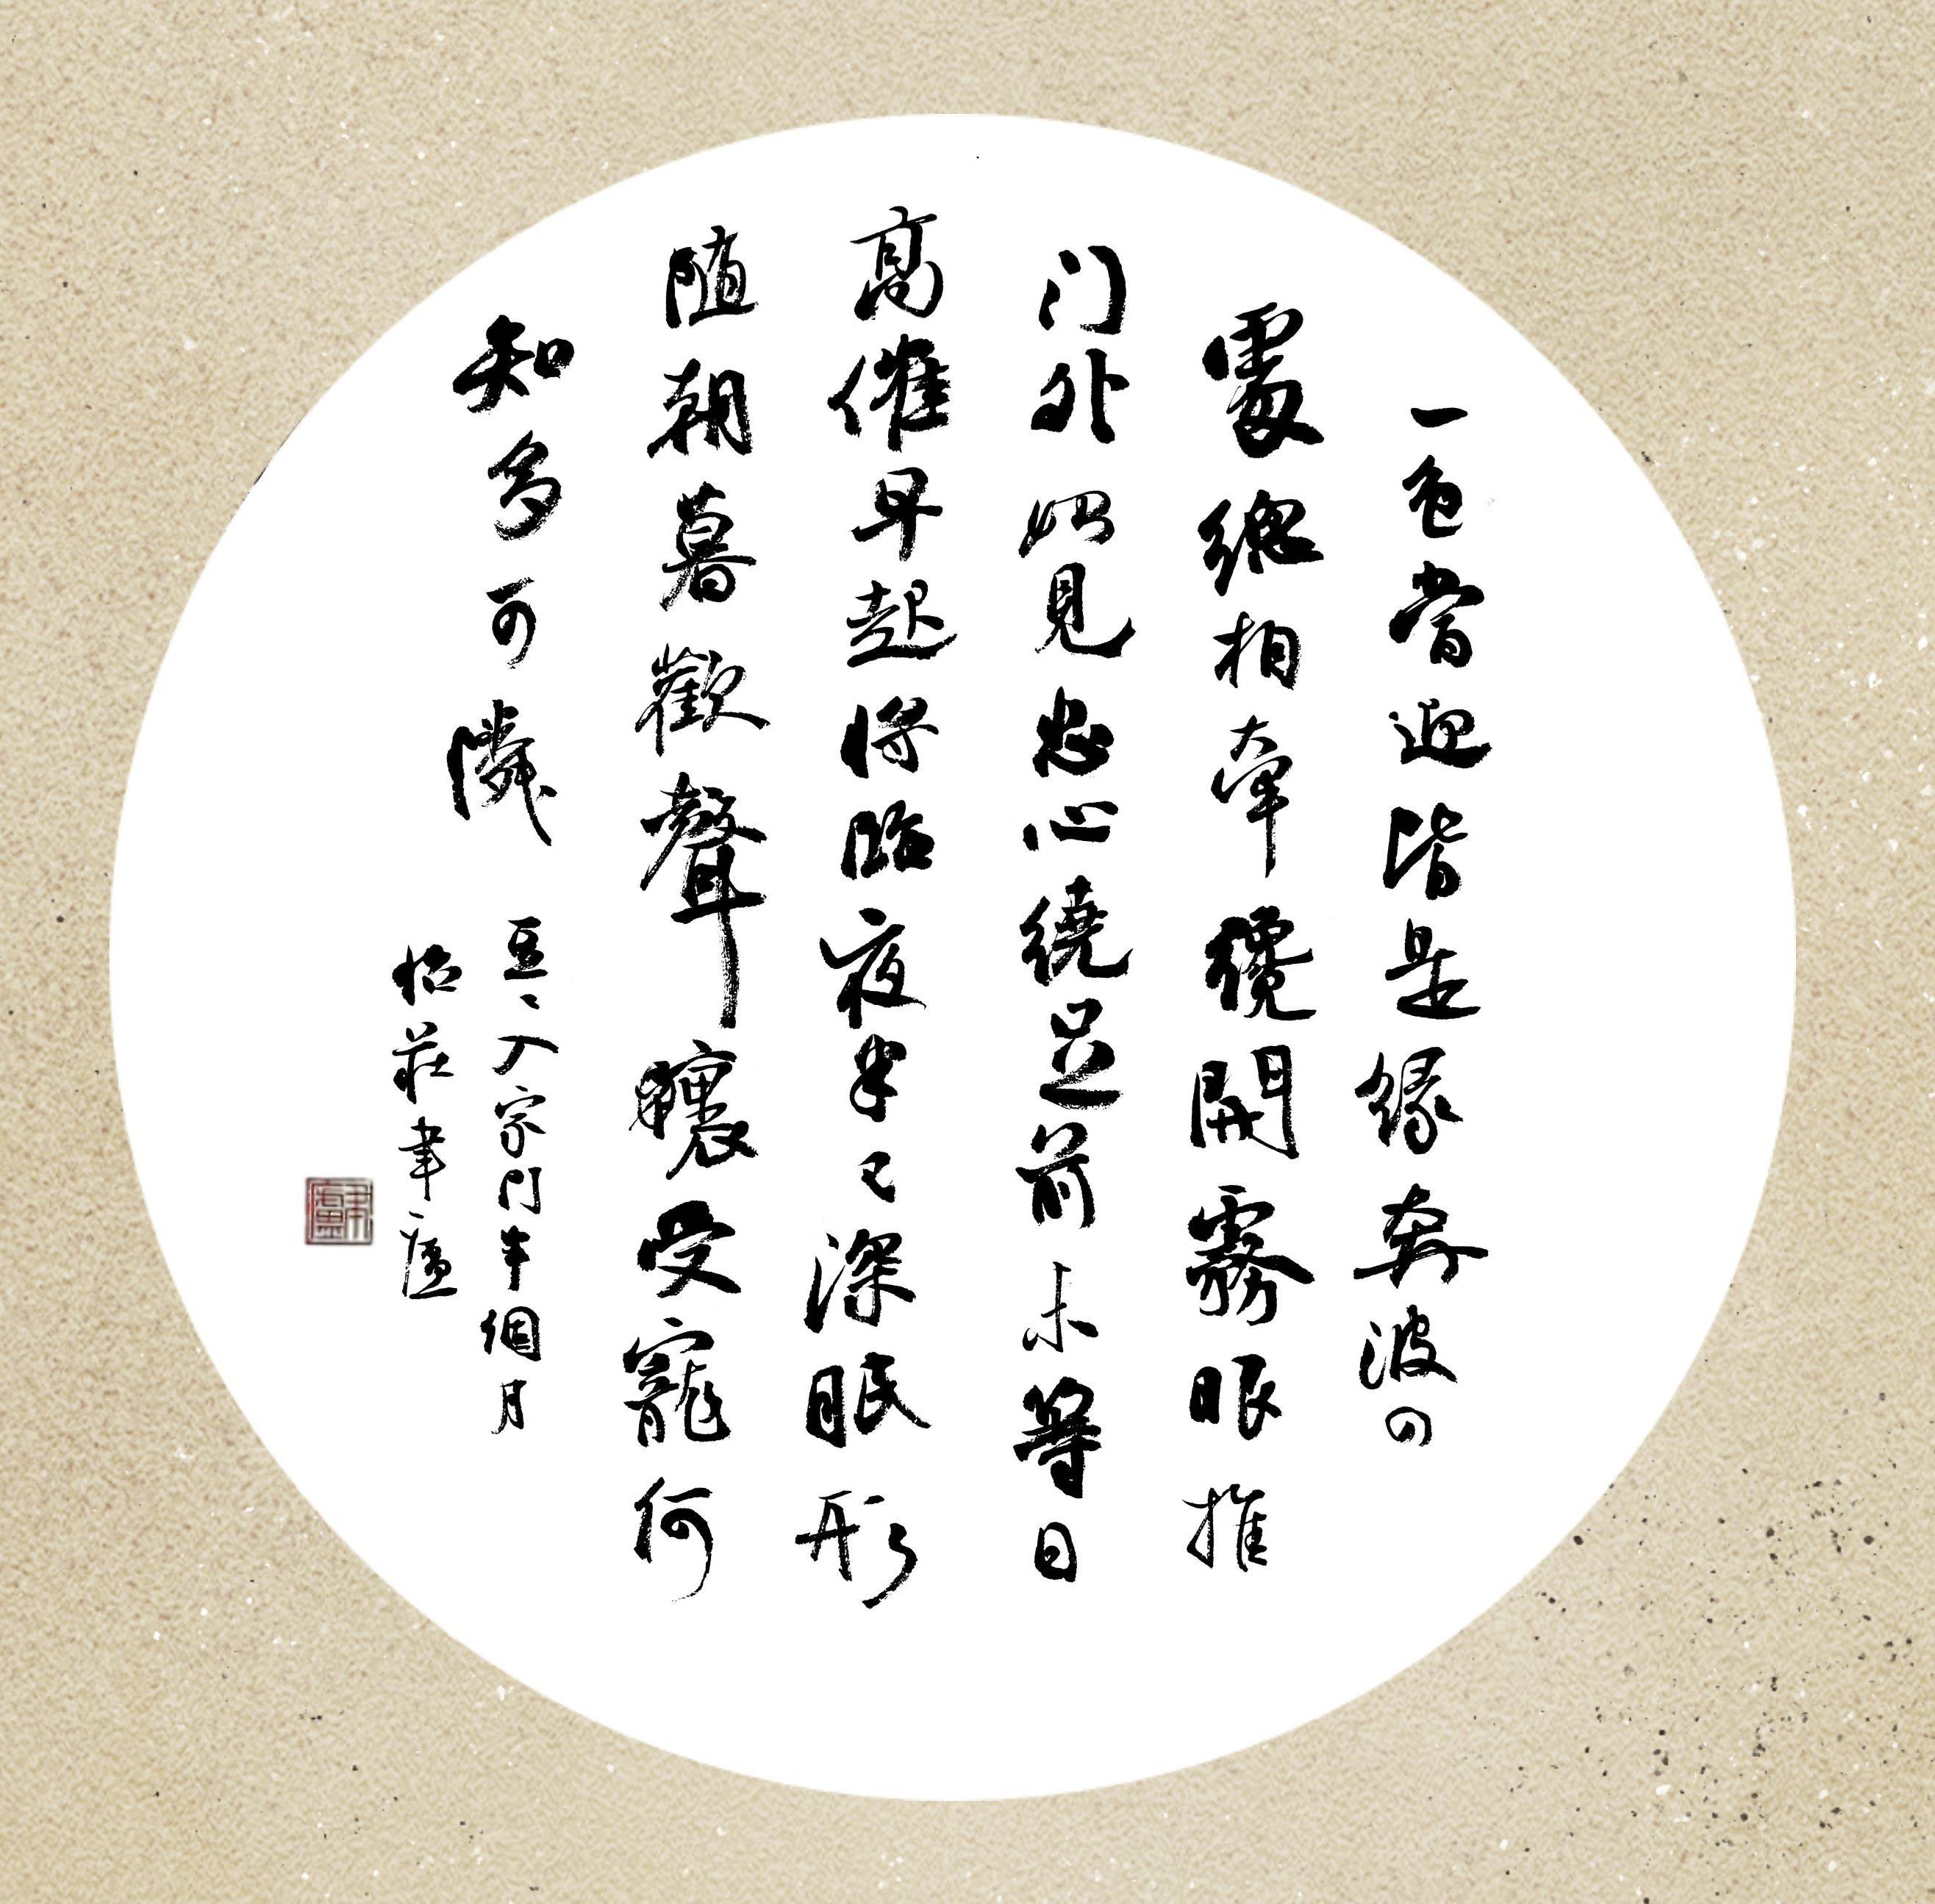 一色當迎皆是緣奔波何
處總相牽纔開霧眼推
门外始見忠心繞足前未等日
高催早起將臨夜半已深眠形
随朝暮歡聲釀受寵何
知多可憐
豆豆入家門半個月
怡莊聿廬